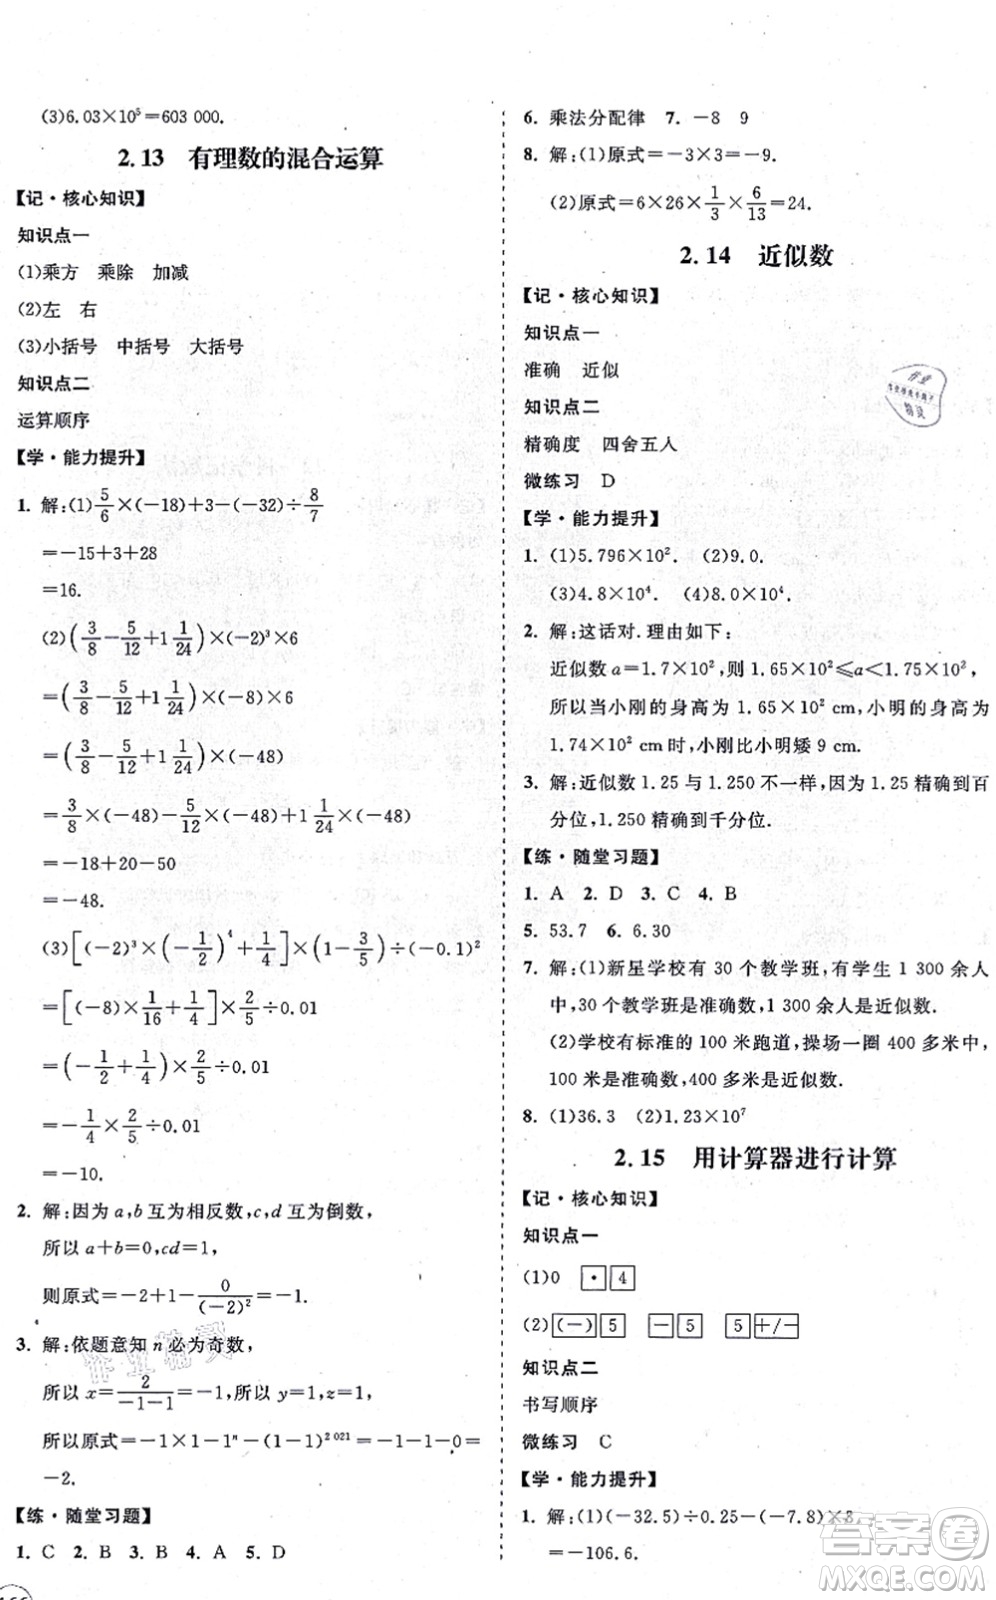 (3)6.03×10⁵=603 000.
2.13 有理数的混合运算
【记·核心知识】
知识点一
(1)乘方 乘除 加减
(2)左 右
(3)小括号 中括号 大括号
知识点二
运算顺序
【学·能力提升】
1. 解:(1)5/6×(-18)+3-(-32)÷8/7
=-15+3+28
=16.
(2)(3/8-5/12+1 1/24)×(-2)³×6
=(3/8-5/12+1 1/24)×(-8)×6
=(3/8-5/12+1 1/24)×(-48)
=3/8×(-48)-5/12×(-48)+1 1/24×(-48)
=-18+20-50
=-48.
(3)[(-2)³×(-1/2)⁴+1/4]×(1-3/5)÷(-0.1)²
=[(-8)×1/16+1/4]×2/5÷0.01
=(-1/2+1/4)×2/5÷0.01
=-1/4×2/5÷0.01
=-10.
2. 解:因为a,b互为相反数,c,d互为倒数,
所以a+b=0,cd=1,
则原式=-2+1-0/(-2)²=-1.
3. 解:依题意知n必为奇数,
所以x=2/(-1-1)=-1,
所以原式=-1×1-1ⁿ-(1-1)²⁰²¹=-1-1-0=
-2.
【练·随堂习题】
1. C 2. B 3. B 4. A 5. D
6. 乘法分配律 7. -8 9
8. 解:(1)原式=-3×3=-9.
(2)原式=6×26×1/3×6/13=24.
2.14 近似数
【记·核心知识】
知识点一
准确 近似
知识点二
精确度 四舍五人
微练习 D
【学·能力提升】
1. (1)5.796×10². (2)9.0.
(3)4.8×10⁴. (4)8.0×10⁴.
2. 解:这话对.理由如下:
近似数a=1.7×10²,则1.65×10²≤a<1.75×10²,
所以当小刚的身高为1.65×10² cm,小明的身高为
1.74×10² cm时,小刚比小明矮9 cm.
3. 解:近似数1.25与1.250不一样,因为1.25精确到百
分位,1.250精确到千分位.
【练·随堂习题】
1. A 2. D 3. C 4. B
5. 53.7 6. 6.30
7. 解:(1)新星学校有30个教学班,有学生1 300余人
中,30个教学班是准确数,1 300余人是近似数.
(2)学校有标准的100米跑道,操场一圈400多米中,
100米是准确数,400多米是近似数.
8. (1)36.3 (2)1.23×10⁷
2.15 用计算器进行计算
【记·核心知识】
知识点一
(1)0 · 4
(2)(-) 5 - 5 5 +/-
知识点二
书写顺序
微练习 C
【学·能力提升】
1. 解:(1)(-32.5)÷0.25-(-7.8)×3.
=-106.6.
答案圈
MXQE.COM